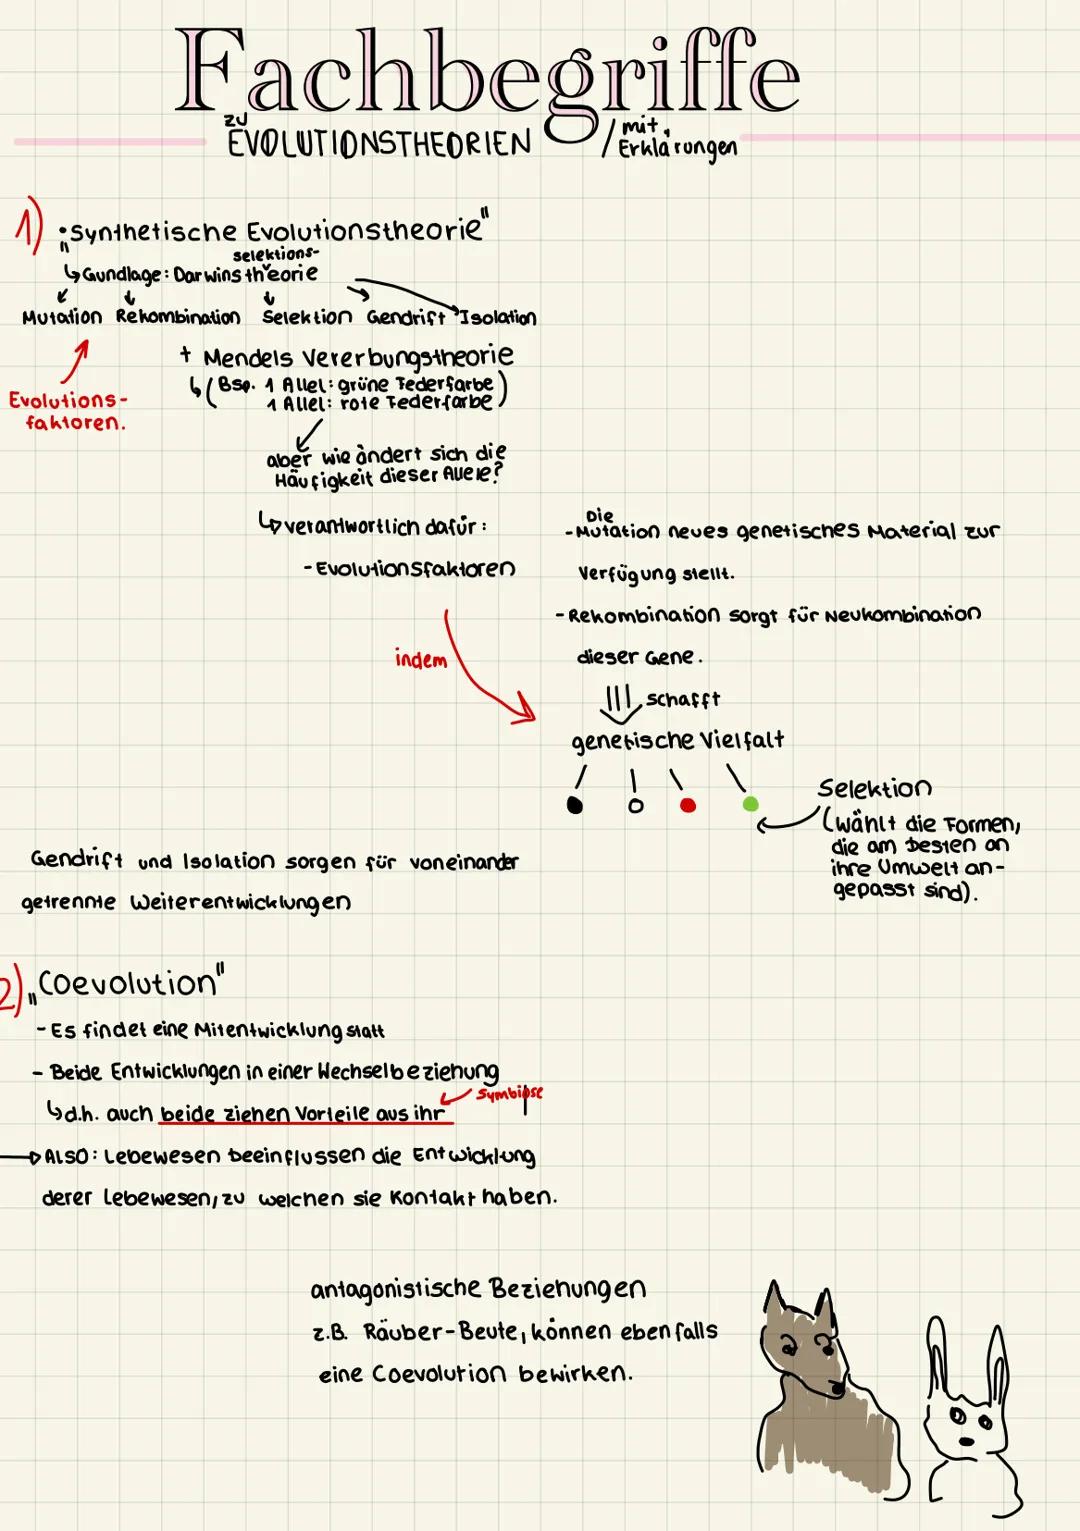 Fachbegriffe
zu
EVOLUTIONSTHEORIEN / mit Erklärungen
1) • „Synthetische Evolutionstheorie"
selektions-
↳ Gundlage: Darwins theorie
Mutation Rekombination Selektion Gendrift Isolation
+ Mendels Vererbungstheorie
↳ (Bsp. 1 Allel: grüne Federfarbe
1 Allel: rote Federfarbe)
Evolutions-
faktoren.
aber wie ändert sich die
Häufigkeit dieser Allele?
↳ verantwortlich dafür:
- Evolutionsfaktoren
indem
Die
- Mutation neues genetisches Material zur
Verfügung stellt.
- Rekombination sorgt für Neukombination
dieser Gene.
schafft
genetische Vielfalt
Selektion
(wählt die Formen,
die am besten an
ihre Umwelt an-
gepasst sind).
Gendrift und Isolation sorgen für voneinander
getrennte Weiterentwicklungen
2) „Coevolution"
- Es findet eine Mitentwicklung statt
- Beide Entwicklungen in einer Wechselbeziehung
Symbiose
↳ d.h. auch beide ziehen Vorteile aus ihr
→ ALSO: Lebewesen beeinflussen die Entwicklung
derer Lebewesen, zu welchen sie Kontakt haben.
antagonistische Beziehungen
z.B. Räuber-Beute, können ebenfalls
eine Coevolution bewirken.